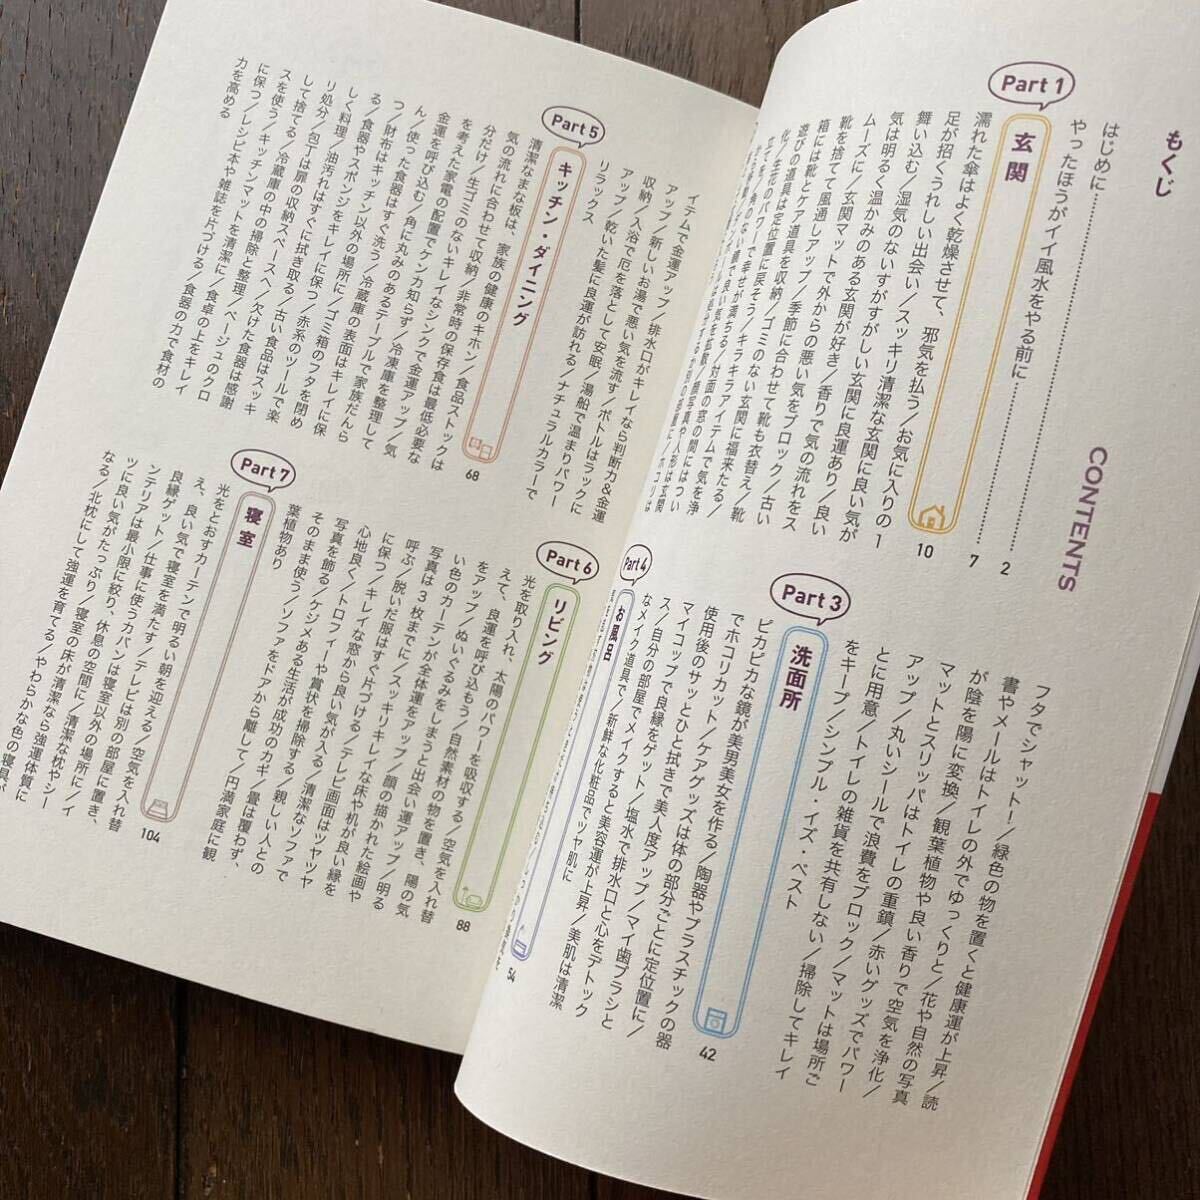 もくじ
CONTENTS
はじめに 2
やったほうがイイ風水をやる前に 7
Part 1
玄関 10
濡れた傘はよく乾燥させて、邪気を払う／お気に入りの1
足が招くうれしい出会い／スッキリ清潔な玄関に良い気が
舞い込む／湿気のないすがすがしい玄関に良運あり／良い
気は明るく温かみのある玄関が好き／香りで気の流れをス
ムーズに／玄関マットで外からの悪い気をブロック／古い
靴を捨てて風通しアップ／季節に合わせて靴も衣替え／靴
箱には靴とケア道具を収納／ゴミのない玄関に福来たる／
遊びの道具は定位置に戻そう／キラキラアイテムで気を浄
化／生花のパワーで幸せが満ちる／対面の窓の間にはつい
フタでシャット！／緑色の物を置くと健康運が上昇／読
書やメールはトイレの外でゆっくりと／花や自然の写真
が陰を陽に変換／観葉植物や良い香りで空気を浄化／
マットとスリッパはトイレの重鎮／赤いグッズでパワー
アップ／丸いシールで浪費をブロック／マットは場所ご
とに用意／トイレの雑貨を共有しない／掃除してキレイ
をキープ／シンプル・イズ・ベスト
Part 3
洗面所 42
ピカピカな鏡が美男美女を作る／陶器やプラスチックの器
でホコリカット／ケアグッズは体の部分ごとに定位置に／
使用後のサッとひと拭きで美人度アップ／マイ歯ブラシと
マイコップで良縁をゲット／塩水で排水口と心をデトック
ス／自分の部屋でメイクすると美容運が上昇／美肌は清潔
なメイク道具で／新鮮な化粧品でツヤ肌に
Part 4
お風呂 54
イテムで金運アップ／排水口がキレイなら判断力＆金運
アップ／新しいお湯で悪い気を流す／ボトルはラックに
収納／入浴で厄を落として安眠／湯船で温まりパワー
アップ／乾いた髪に良運が訪れる／ナチュラルカラーで
リラックス
Part 5
キッチン・ダイニング 68
清潔なまな板は、家族の健康のキホン／食品ストックは
気の流れに合わせて収納／非常時の保存食は最低必要な
分だけ／生ゴミのないキレイなシンクで金運アップ／気
を考えた家電の配置でケンカ知らず／冷凍庫を整理して
金運を呼び込む／角に丸みのあるテーブルで家族だんら
ん／使った食器はすぐ洗う／冷蔵庫の表面はキレイに保
つ／財布はキッチン以外の場所に／ゴミ箱のフタを閉め
る／食器やスポンジをキレイに保つ／赤系のツールで楽
しく料理／油汚れはすぐに拭き取る／古い食品はスッキ
リ処分／包丁は扉の収納スペースへ／欠けた食器は感謝
して捨てる／冷蔵庫の中の掃除と整理／ベージュのクロ
スを使う／キッチンマットを清潔に／食卓の上をキレイ
に保つ／レシピ本や雑誌を片づける／食器の力で食材の
力を高める
Part 6
リビング 88
光を取り入れ、太陽のパワーを吸収する／空気を入れ替
えて、良運を呼び込もう／自然素材の物を置き、陽の気
をアップ／ぬいぐるみをしまうと出会い運アップ／明る
い色のカーテンが全体運をアップ／顔の描かれた絵画や
写真は3枚までに／スッキリキレイな床や机が良い縁を
呼ぶ／脱いだ服はすぐ片づける／テレビ画面はツヤツヤ
に保つ／キレイな窓から良い気が入る／清潔なソファで
心地良く／トロフィーや賞状を掃除する／親しい人との
写真を飾る／ケジメある生活が成功のカギ／畳は覆わず、
そのまま使う／ソファをドアから離して／円満家庭に観
葉植物あり
Part 7
寝室 104
光をとおすカーテンで明るい朝を迎える／空気を入れ替
え、良い気で寝室を満たす／テレビは別の部屋に置き、
良縁ゲット／仕事に使うカバンは寝室以外の場所に／イ
ンテリアは最小限に絞り、休息の空間に／清潔な枕やシー
ツに良い気がたっぷり／寝室の床が清潔なら強運体質に
なる／北枕にして強運を育てる／やわらかな色の寝具が